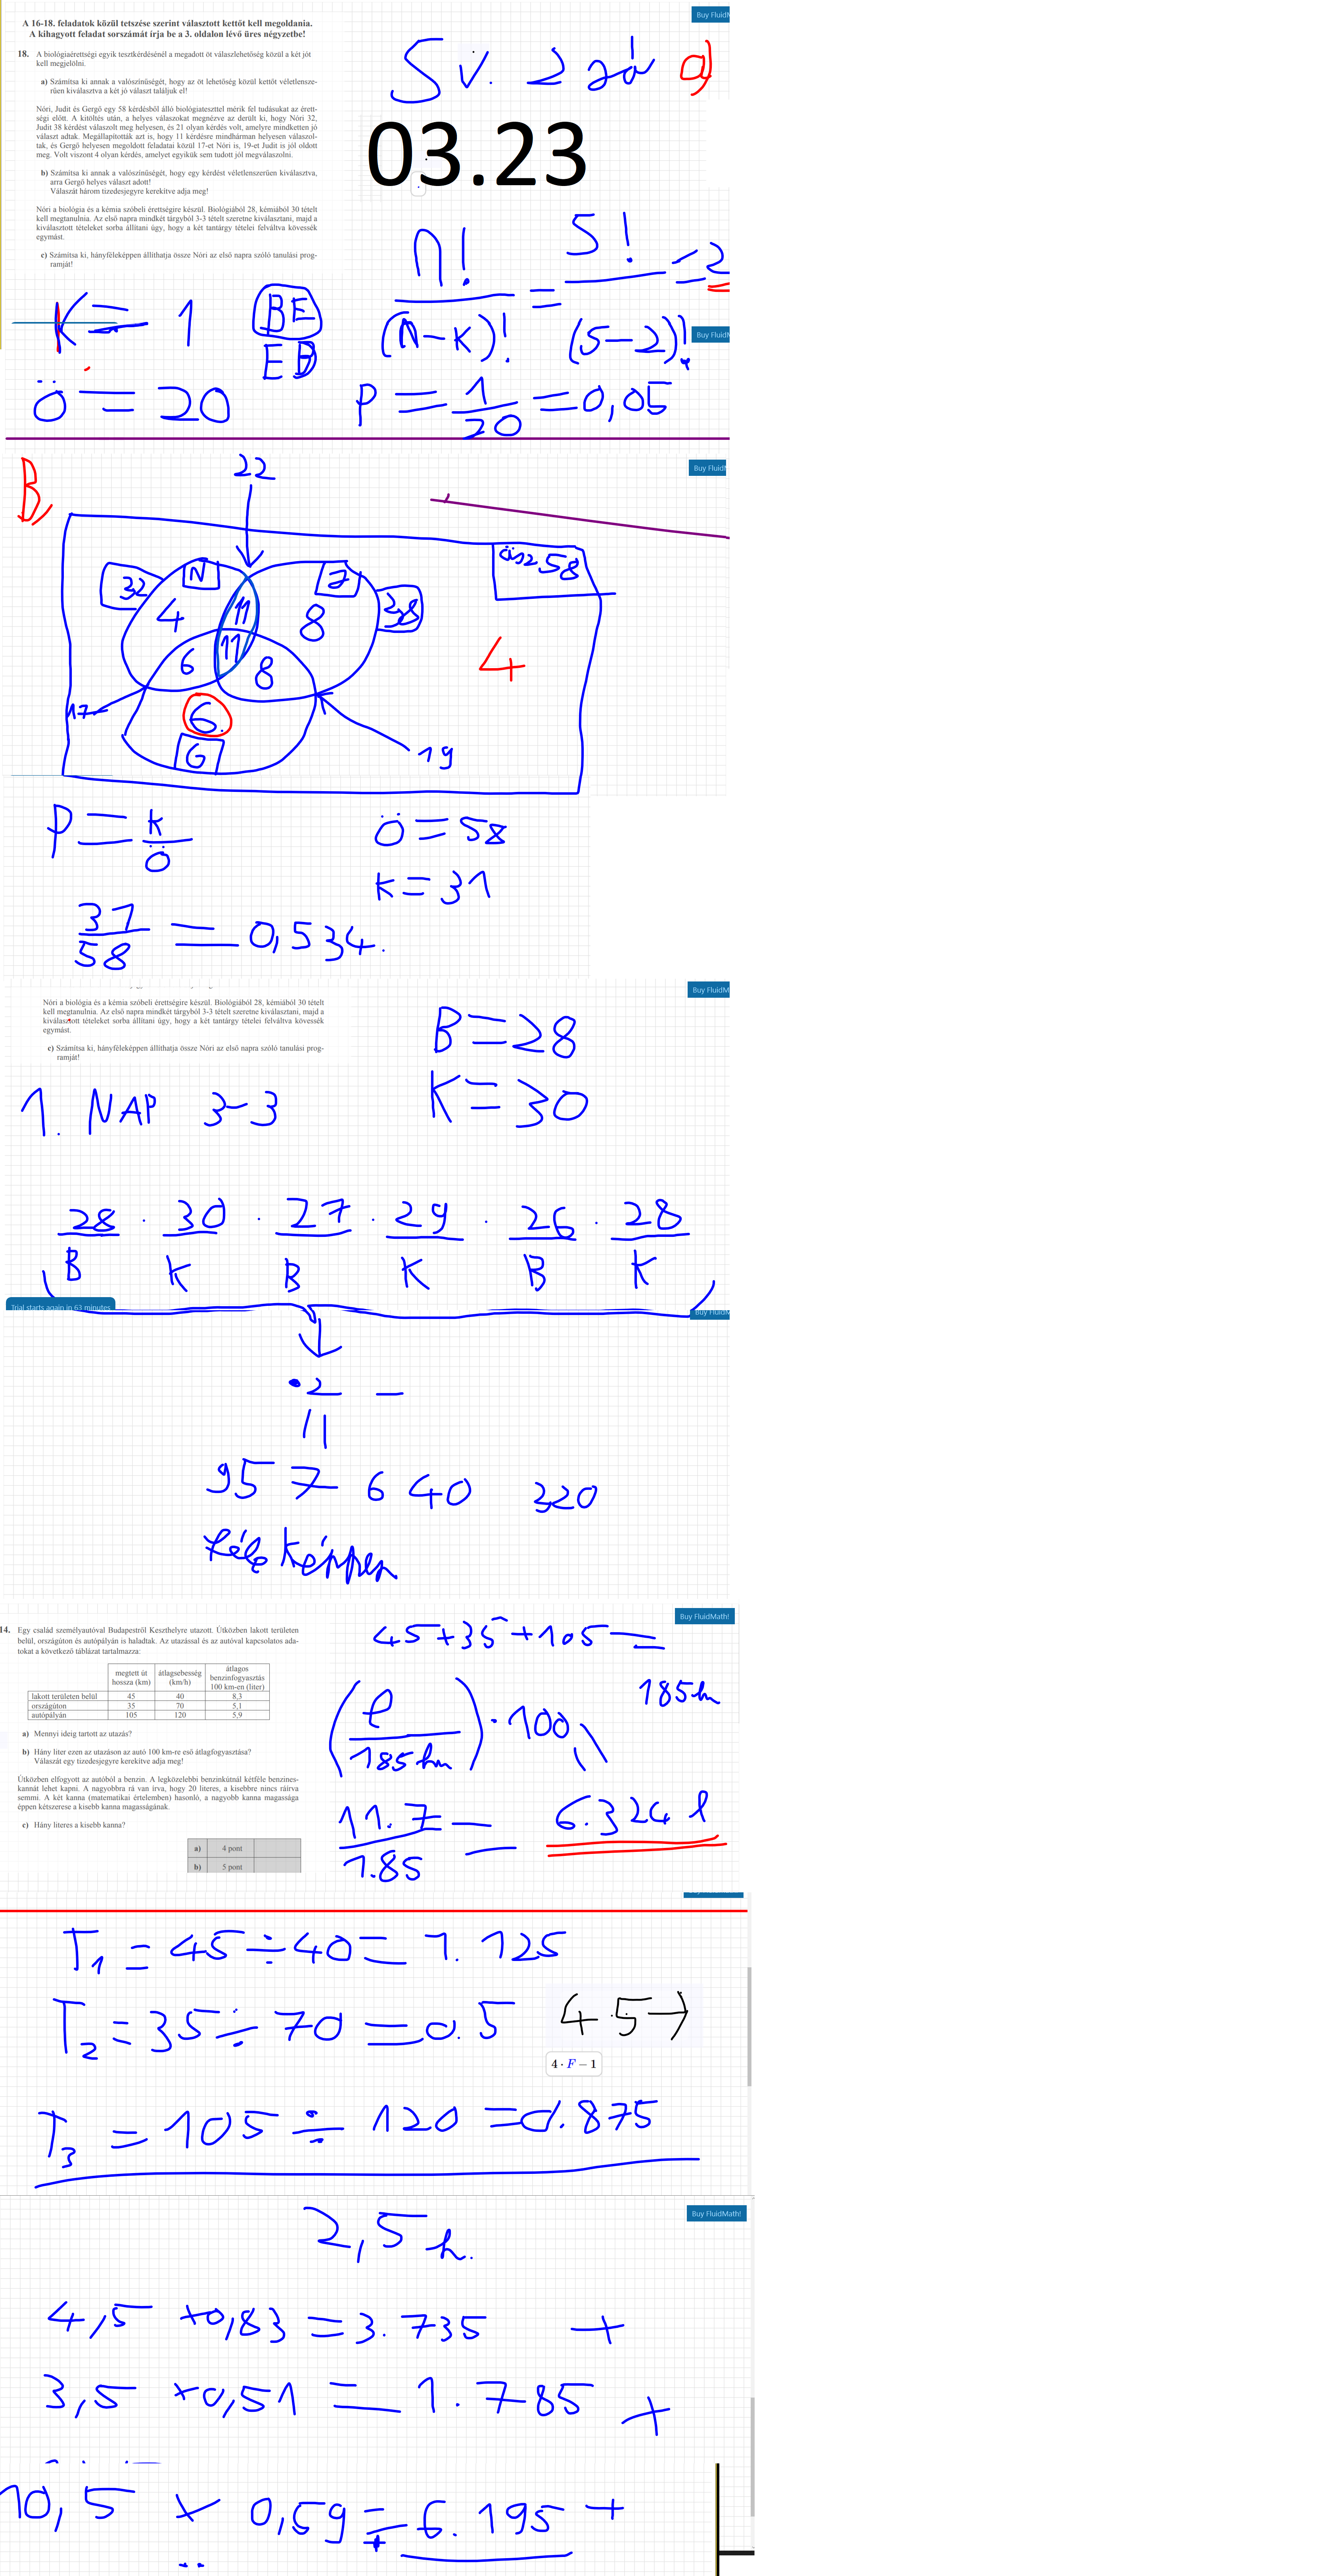 A 16-18. feladatok közül tetszése szerint választott kettőt kell megoldania.
A kihagyott feladat sorszámát írja be a 3. oldalon lévő üres négyzetbe!
Buy FluidM
18. A biológiaérettségi egyik tesztkérdésénél a megadott öt válaszlehetőség közül a két jót
kell megjelölni.
a) Számítsa ki annak a valószínűségét, hogy az öt lehetőség közül kettőt véletlensze-
rűen kiválasztva a két jó választ találjuk el!
5 v. 2 jó a)
03.23
Nóri, Judit és Gergő egy 58 kérdésből álló biológiateszttel mérik fel tudásukat az érett-
ségi előtt. A kitöltés után, a helyes válaszokat megnézve az derült ki, hogy Nóri 32,
Judit 38 kérdést válaszolt meg helyesen, és 21 olyan kérdés volt, amelyre mindketten jó
választ adtak. Megállapították azt is, hogy 11 kérdésre mindhárman helyesen válaszol-
tak, és Gergő helyesen megoldott feladatai közül 17-et Nóri is, 19-et Judit is jól oldott
meg. Volt viszont 4 olyan kérdés, amelyet egyikük sem tudott jól megválaszolni.
b) Számítsa ki annak a valószínűségét, hogy egy kérdést véletlenszerűen kiválasztva,
arra Gergő helyes választ adott!
Válaszát három tizedesjegyre kerekítve adja meg!
Nóri a biológia és a kémia szóbeli érettségire készül. Biológiából 28, kémiából 30 tételt
kell megtanulnia. Az első napra mindkét tárgyból 3-3 tételt szeretne kiválasztani, majd a
kiválasztott tételeket sorba állítani úgy, hogy a két tantárgy tételei felváltva kövessék
egymást.
c) Számítsa ki, hányféleképpen állíthatja össze Nóri az első napra szóló tanulási prog-
ramját!
n! / (N-K)! = 5! / (5-2)! = 2
K = 1
BE
EB
Buy FluidM
Ö = 20
P = 1/20 = 0,05
B,
22
Buy FluidM
32 N J 38
össz 58
4 11 8
6 11 8
4
17
6.
G
19
P = K/Ö
Ö = 58
K = 31
31/58 = 0,534.
Buy FluidM
Nóri a biológia és a kémia szóbeli érettségire készül. Biológiából 28, kémiából 30 tételt
kell megtanulnia. Az első napra mindkét tárgyból 3-3 tételt szeretne kiválasztani, majd a
kiválasztott tételeket sorba állítani úgy, hogy a két tantárgy tételei felváltva kövessék
egymást.
c) Számítsa ki, hányféleképpen állíthatja össze Nóri az első napra szóló tanulási prog-
ramját!
B = 28
K = 30
1. NAP 3-3
28 · 30 · 27 · 29 · 26 · 28
B K B K B K
Trial starts again in 63 minutes
Buy FluidM
·2 =
957 640 320
féleképpen
Buy FluidMath!
14. Egy család személyautóval Budapestről Keszthelyre utazott. Útközben lakott területen
belül, országúton és autópályán is haladtak. Az utazással és az autóval kapcsolatos ada-
tokat a következő táblázat tartalmazza:
megtett út hossza (km) átlagsebesség (km/h) átlagos benzinfogyasztás 100 km-en (liter)
lakott területen belül 45 40 8,3
országúton 35 70 5,1
autópályán 105 120 5,9
a) Mennyi ideig tartott az utazás?
b) Hány liter ezen az utazáson az autó 100 km-re eső átlagfogyasztása?
Válaszát egy tizedesjegyre kerekítve adja meg!
Útközben elfogyott az autóból a benzin. A legközelebbi benzinkútnál kétféle benzines-
kannát lehet kapni. A nagyobbra rá van írva, hogy 20 literes, a kisebbre nincs ráírva
semmi. A két kanna (matematikai értelemben) hasonló, a nagyobb kanna magassága
éppen kétszerese a kisebb kanna magasságának.
c) Hány literes a kisebb kanna?
a) 4 pont
b) 5 pont
45+35+105 =
185 km
(l / 185 km) · 100
11.7 / 1.85 = 6.324 l
T1 = 45 ÷ 40 = 1.125
T2 = 35 ÷ 70 = 0.5
4 · F − 1
T3 = 105 ÷ 120 = 0.875
Buy FluidMath!
2,5 h.
4,5 × 0,83 = 3.735 +
3,5 × 0,51 = 1.785 +
10,5 × 0,59 = 6.195 +